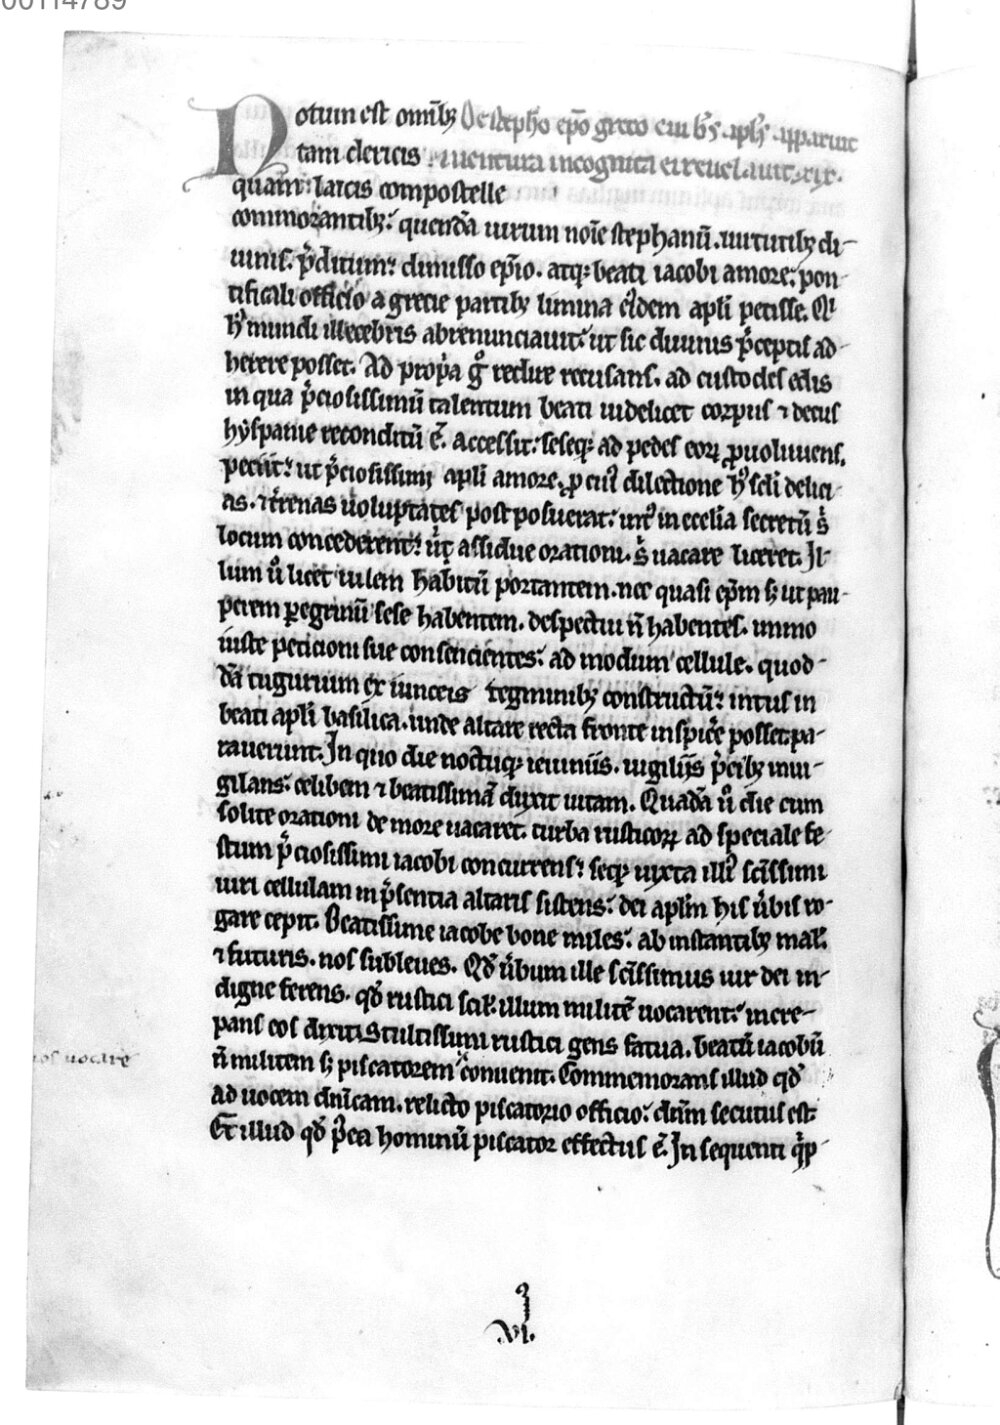 00114789
Notum est omībꝫ De stepħo ep̄o greco cui b̄s apl̄s apparuit
tam clericis ⁊ uentura incognita ei reuelauit. xix.
quam laicis compostelle
commorantibꝫ. quendā uirum noīe stephanū. uirtutibꝫ di-
uinis p̄ditum: dimisso ep̄io. atqꝫ beati iacobi amore: pon-
tificali officio a grecie partibꝫ limina eiꝰdem apl̄i petisse. Qi
hꝰ mundi illecebris abrenunciauit. ut sic diuinis p̄ceptis ad-
herere posset. Ad prop̄a g̊ redire recusans. ad custodes edis
in qua p̄ciosissimū talentum beati uidelicet corpus ⁊ decus
hẏspanie reconditū ē. accessit: seseqꝫ ad pedes eoꝝ ꝓuoluens.
peciit: ut p̄ciosissimi apl̄i amore. ꝓ cuiꝰ dilectione hꝰ scl̄i delici-
as. ⁊ t̄renas uoluptates postposuerat: intͥ in ecclīa secretū sͥ
locum concederent: ut̓ assidue orationi. sͥ uacare liceret. Il-
lum ũ licet uilem habitū portantem. nec quasi ep̄m sꝫ ut pau-
perem peregrinū sese habentem. despectui n̄ habentes. immo
iuste peticioni sue consencientes: ad modum cellule. quod-
dā tugurium ex iunceis tegminibꝫ constructū: intus in
beati apl̄i basilica. unde altare recta fronte inspic̄e posset. pa-
rauerunt. In quo die noctuqꝫ ieiuniis. uigilijs p̄cibꝫ inui-
gilans. celibem ⁊ beatissimā duxit uitam. Quadā ũ die cum
solite orationi de more uacaret. turba rusticoꝝ ad speciale fe-
stum p̄ciosissimi iacobi concurrens: seqꝫ iuxta illiꝰ scīssimi
uiri cellulam in p̄sentia altaris sistens: dei apl̄m his ūbis ro-
gare cepit. Beatissime iacobe bone miles: ab instantibꝫ mal̄.
⁊ futuris. nos subleues. Qđ ūbum ille scīssimus uir dei in-
digne ferens. qđ rustici scil̄. illum militē uocarent: incre-
pans eos dixit. Stultissimi rustici gens fatua. beatū iacobū
nos uocare
n̄ militem sꝫ piscatorem conuenit. Commemorans illud qđ
ad uocem dn̄icam. relicto piscatorio officio: dn̄m secutus est:
Et illud qđ p̄ea hominū piscator effectus ē. In sequenti q̓ꝓ
VI.